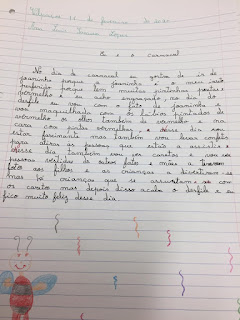 11 de fevereiro de
Eu e o carnaval
No dia de carnaval eu gostava de ir de
joaninha porque a joaninha é o meu inseto
preferido porque tem muitas pintinhas pretas e
vermelho e eu acho engraçado, no dia do
desfile eu vou com o fato de joaninha e
vou maquilhada com os lábios pintados de
vermelho os olhos também de vermelho e na
cara com pintas vermelhas, e nesse dia vou
estar feminina mas também vou levar confetis
para atirar às pessoas que estão a assistir e
nesse dia também vou ver caretos e vou ver
pessoas vestidas de outros fatos e mães a tirarem
foto aos filhos e as crianças a divertirem-se
mas há crianças que se assustam com
os caretos mas depois disso acaba o desfile e eu
fico muito feliz desse dia.